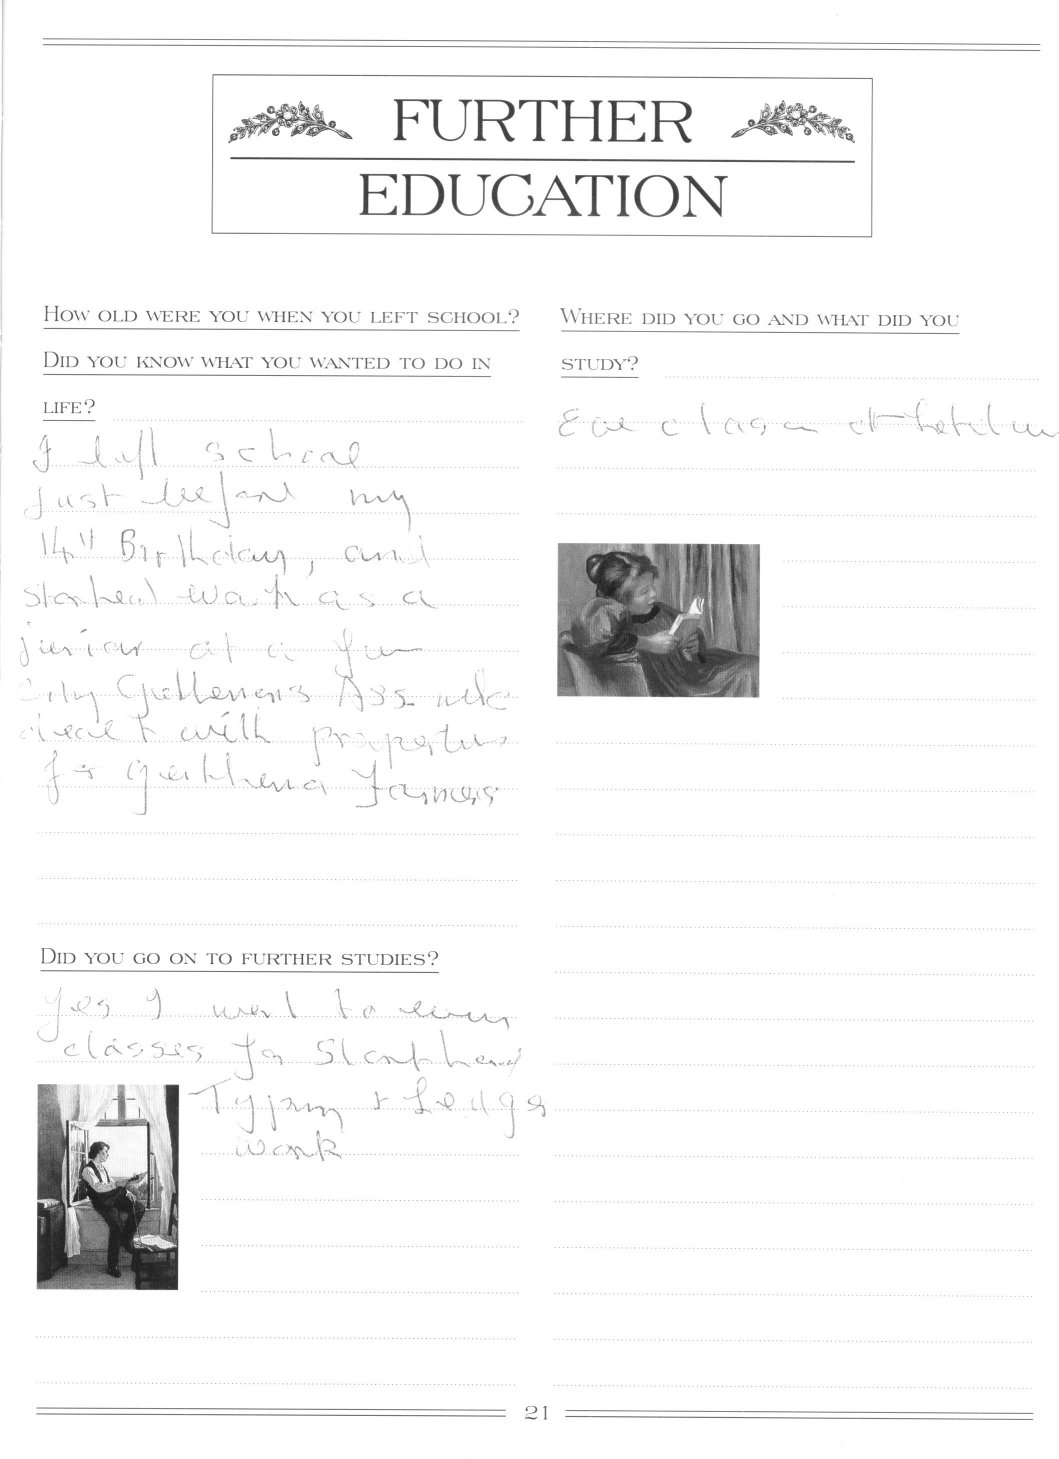 FURTHER
EDUCATION
HOW OLD WERE YOU WHEN YOU LEFT SCHOOL?
DID YOU KNOW WHAT YOU WANTED TO DO IN
LIFE?
I left school
just before my
14th Birthday, and
started work as a
junior at a
City Gentlemens Ass
dealt with properties
for Gentlemen Farmers
DID YOU GO ON TO FURTHER STUDIES?
Yes I went to
classes for Shorthand
Typing + Ledger
work
WHERE DID YOU GO AND WHAT DID YOU
STUDY?
Eve classes at
21